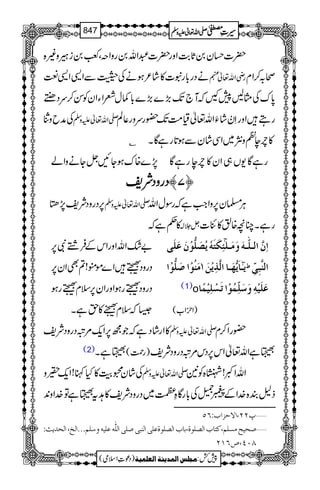 سیرتِ مصطفیٰ صلی اللہ تعالیٰ علیہ وسلم 847
حضرت حسان بن ثابت اور حضرت عبداللہ بن رواحہ، کعب بن زہیر وغیرہ
صحابہ کرام رضی اللہ تعالیٰ عنہم نے دربار نبوت کا شاعر ہونے کی حیثیت سے ایسی ایسی نعت
پاک کی مثالیں پیش کیں کہ آج تک بڑے بڑے باکمال شعراء ان کو سن کر سر دھنتے
رہتے ہیں اور ان شاءَ اللہ تعالیٰ قیامت تک حضور سرور عالم صلی اللہ تعالیٰ علیہ وسلم کی مدح و ثنا
کا چرچا نظم و نثر میں اسی شان سے ہوتا رہے گا۔
رہے گا یوں ہی ان کا چرچا رہے گا پڑے خاک ہو جائیں جل جانے والے
﴿۷﴾ درود شریف
ہر مسلمان پر واجب ہے کہ رسول اللہ صلی اللہ تعالیٰ علیہ وسلم پر درود شریف پڑھتا
رہے۔ چنانچہ خالق کائنات جل جلالہ کا حکم ہے کہ
اِنَّ اللّٰهَ وَمَلٰٓئِكَتَهٗ یُصَلُّوْنَ عَلَى بے شک اللہ اور اس کے فرشتے نبی پر
النَّبِیِّ ؕ یٰۤاَیُّهَا الَّذِیْنَ اٰمَنُوْا صَلُّوْا درود بھیجتے ہیں اے مومنو! تم بھی ان پر
عَلَیْهِ وَسَلِّمُوْا تَسْلِیْمًاo (1) درود بھیجتے رہو اور ان پر سلام بھیجتے رہو
(احزاب) جیسا کہ سلام بھیجنے کا حق ہے۔
حضور اکرم صلی اللہ تعالیٰ علیہ وسلم کا ارشاد ہے کہ جو مجھ پر ایک مرتبہ درود شریف
بھیجتا ہے اللہ تعالیٰ اس پر دس مرتبہ درود شریف (رحمت) بھیجتا ہے۔ (2)
اللہ اکبر! شہنشاہ کونین صلی اللہ تعالیٰ علیہ وسلم کی شان محبوبیت کا کیا کہنا! ایک حقیر و
ذلیل بندہ خدا کے پیغمبر جمیل کی بارگاہ عظمت میں درود شریف کا ہدیہ بھیجتا ہے تو خداوند
......پ۲۲، الاحزاب: ۵۶
......صحیح مسلم، کتاب الصلوۃ، باب الصلوۃ علی النبی صلی اللّٰہ علیہ وسلم...الخ، الحدیث:
۴۰۸، ص۲۱۶
پیش کش: مجلس المدینۃ العلمیۃ (دعوتِ اسلامی)